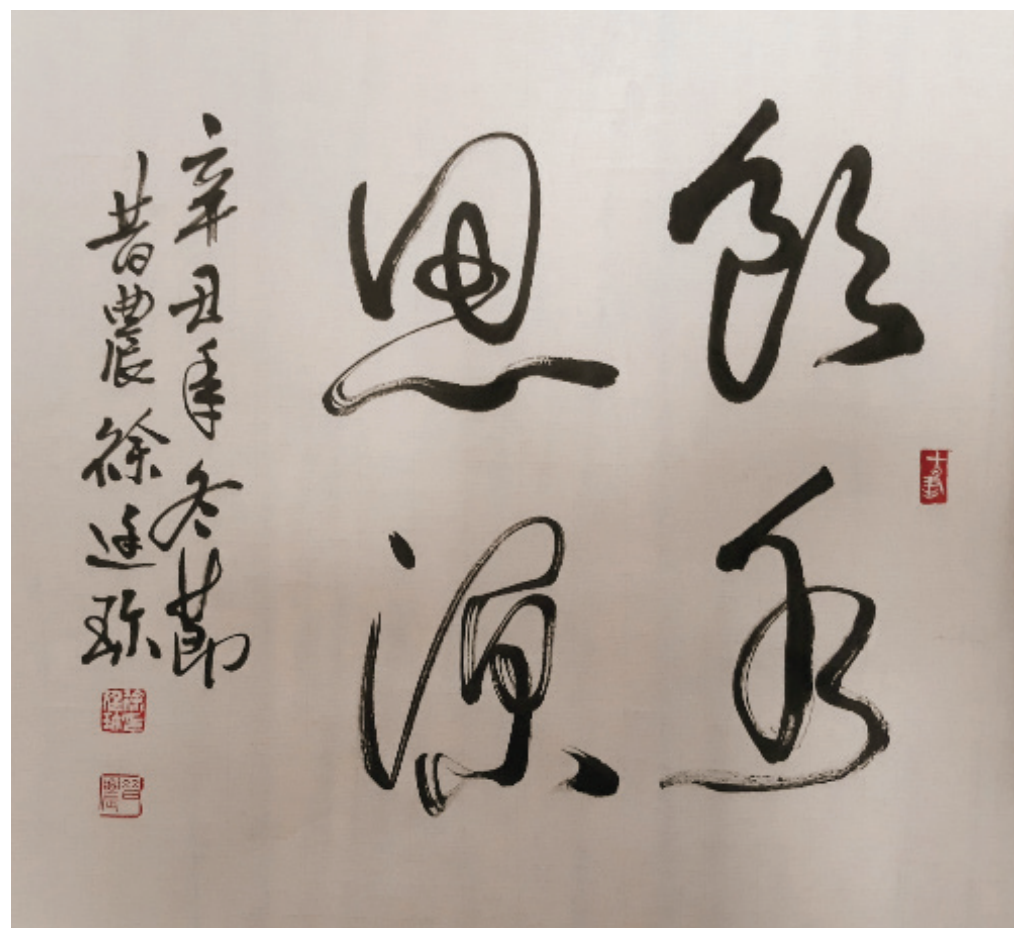 飲水
思源
辛丑年冬節
昔農徐廷珎